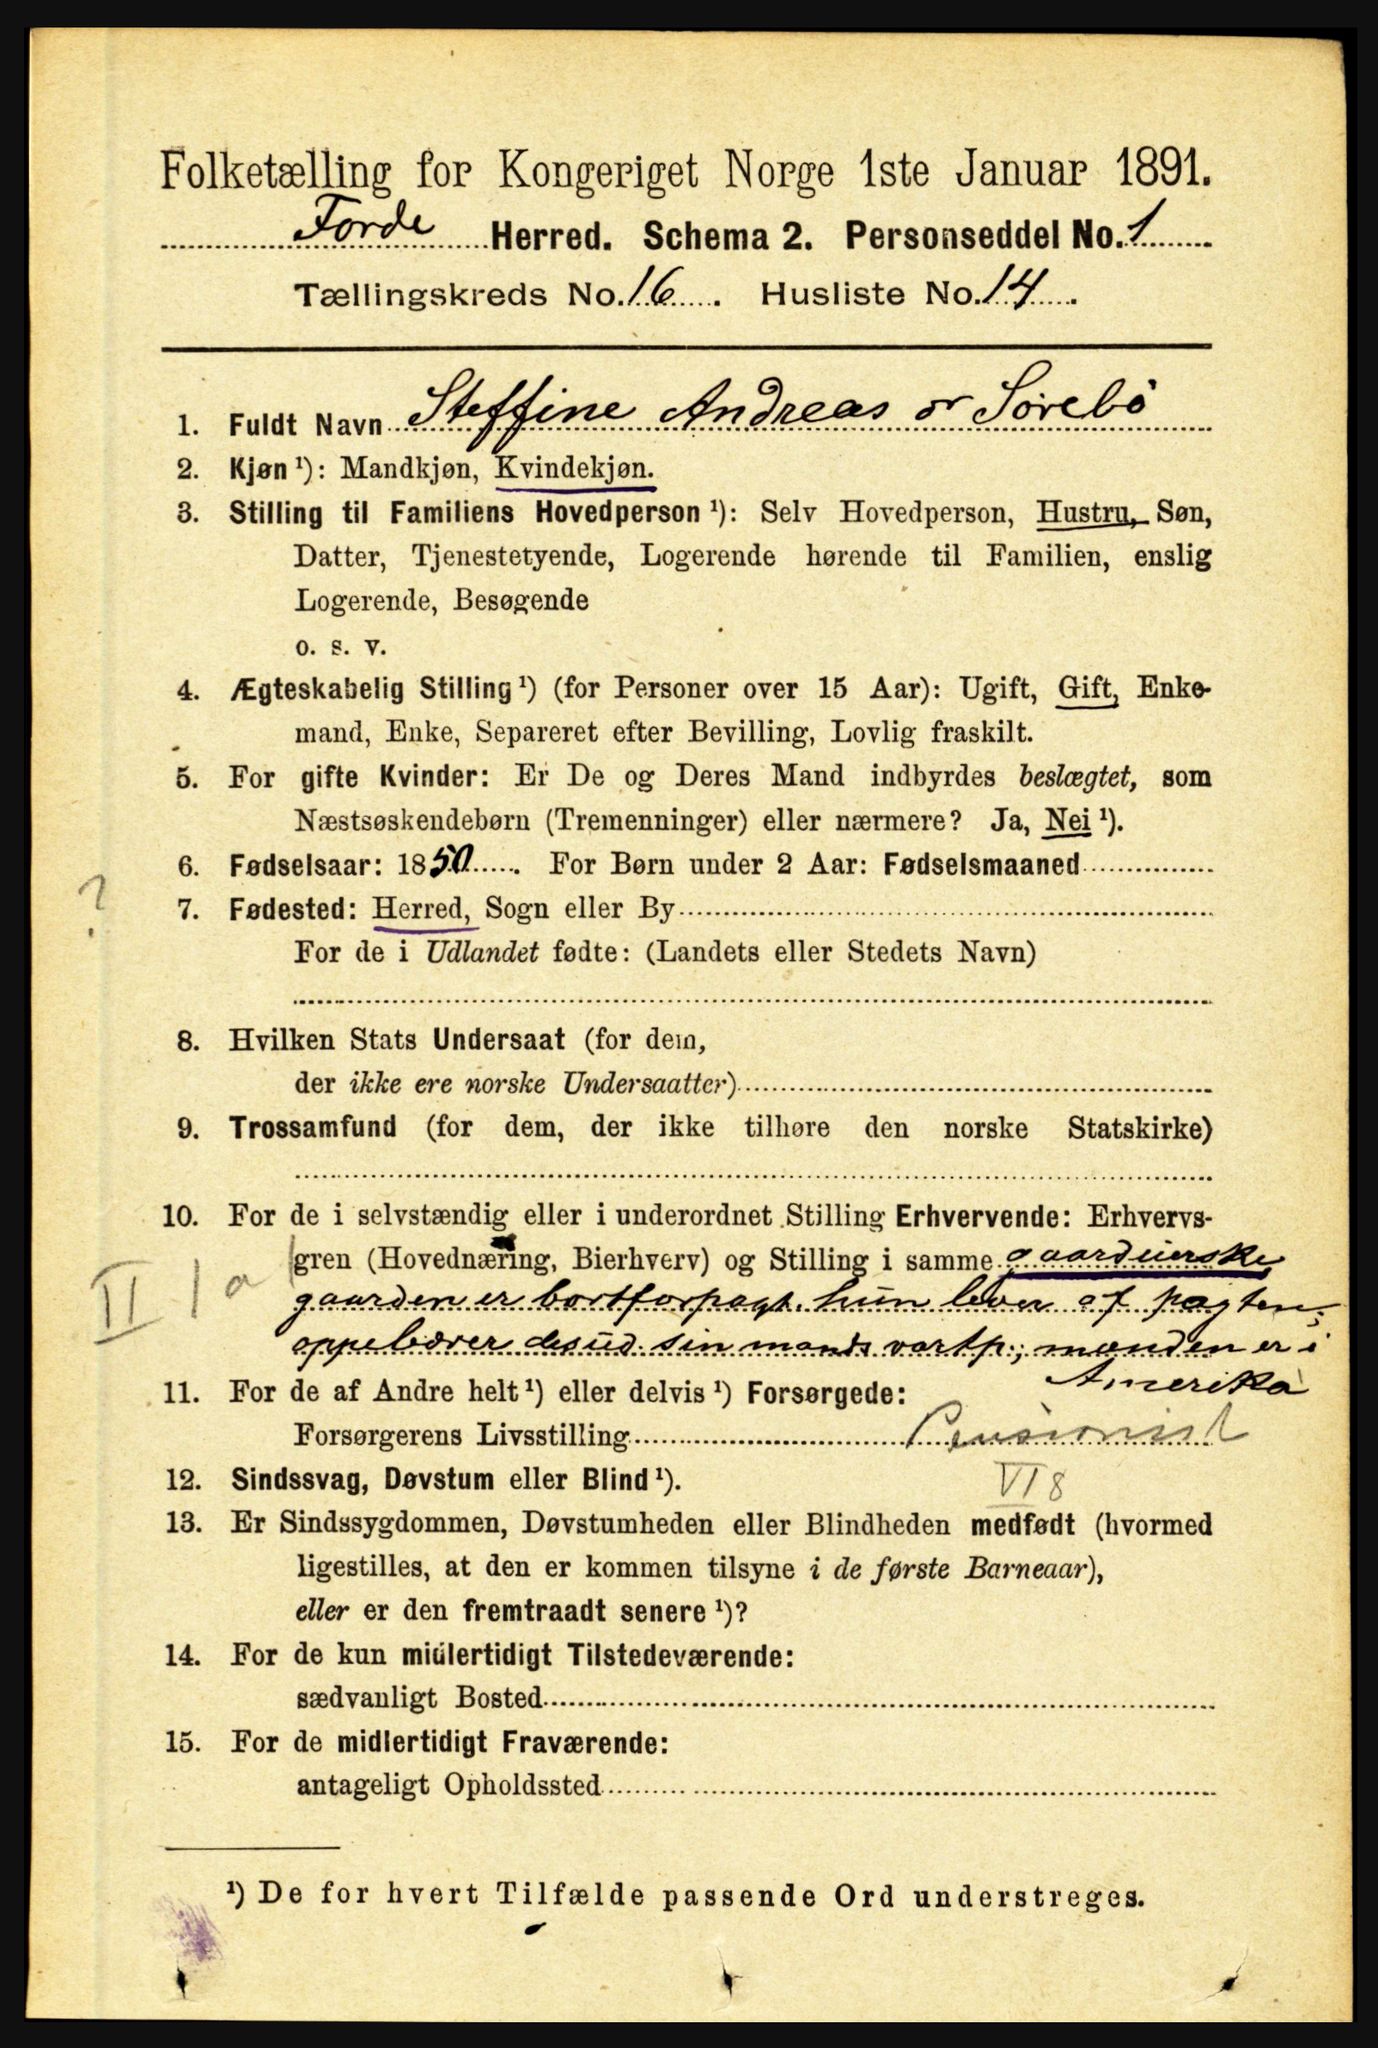 Folketælling for Kongeriget Norge 1ste Januar 1891.
Førde Herred. Schema 2. Personseddel No. 1
Tællingskreds No. 16. Husliste No. 14.
1. Fuldt Navn Steffine Andreasdr Sørebø
2. Kjøn ¹): Mandkjøn, Kvindekjøn.
3. Stilling til Familiens Hovedperson ¹): Selv Hovedperson, Hustru, Søn,
Datter, Tjenestetyende, Logerende hørende til Familien, enslig
Logerende, Besøgende
o. s. v.
4. Ægteskabelig Stilling ¹) (for Personer over 15 Aar): Ugift, Gift, Enke-
mand, Enke, Separeret efter Bevilling, Lovlig fraskilt.
5. For gifte Kvinder: Er De og Deres Mand indbyrdes beslægtet, som
Næstsøskendebørn (Tremenninger) eller nærmere? Ja, Nei ¹).
6. Fødselsaar: 1850. For Børn under 2 Aar: Fødselsmaaned
?
7. Fødested: Herred, Sogn eller By
For de i Udlandet fødte: (Landets eller Stedets Navn)
8. Hvilken Stats Undersaat (for dem,
der ikke ere norske Undersaatter)
9. Trossamfund (for dem, der ikke tilhøre den norske Statskirke)
10. For de i selvstændig eller i underordnet Stilling Erhvervende: Erhvervs-
gren (Hovednæring, Bierhverv) og Stilling i samme gaardeierske
II 1a
gaarden er bortforpagt. hun lever af pagten;
oppebærer desud. sin mands vartp.; manden er i
Amerika
11. For de af Andre helt ¹) eller delvis ¹) Forsørgede:
Forsørgerens Livsstilling Pensionist
VI 8
12. Sindssvag, Døvstum eller Blind ¹).
13. Er Sindssygdommen, Døvstumheden eller Blindheden medfødt (hvormed
ligestilles, at den er kommen tilsyne i de første Barneaar),
eller er den fremtraadt senere ¹)?
14. For de kun midlertidigt Tilstedeværende:
sædvanligt Bosted
15. For de midlertidigt Fraværende:
antageligt Opholdssted
¹) De for hvert Tilfælde passende Ord understreges.